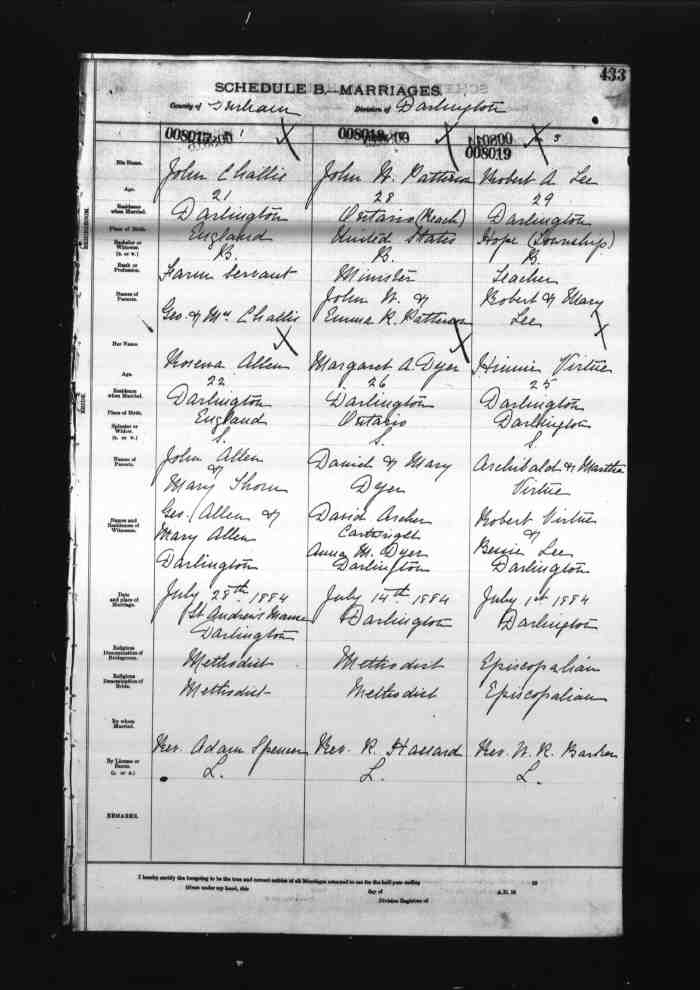 433
SCHEDULE B.—MARRIAGES.
County of Durham Division of Darlington
008017 1 008018 008019 3
His Name. John Challis John W. Patterson Robert A. Lee
Age. 21 28 29
Residence when Married. Darlington Ontario (Reach) Darlington
Place of Birth. England United States Hope (Township)
Bachelor or Widower (B. or W.) B. B. B.
Rank or Profession. Farm Servant Minister Teacher
Names of Parents. Geo. & Mrs Challis John W. & Emma R. Patterson Robert & Mary Lee
BRIDEGROOM.
Her Name Rosena Allen Margaret A. Dyer Virtue
Age. 22 26 25
Residence when Married. Darlington Darlington Darlington
Place of Birth. England Ontario Darlington
Spinster or Widow. (S. or W.) S. S. S.
BRIDE.
Names of Parents. John Allen & Mary Thorn Daniel & Mary Dyer Archibald & Martha Virtue
Names and Residences of Witnesses. Geo. Allen & Mary Allen Darlington David Archer Cartwright Anna M. Dyer Darlington Robert Virtue & Bessie Lee Darlington
Date and place of Marriage. July 28th 1884 St Andrew's Manse Darlington July 14th 1884 Darlington July 1st 1884 Darlington
Religious Denomination of Bridegroom. Methodist Methodist Episcopalian
Religious Denomination of Bride. Methodist Methodist Episcopalian
By whom Married. Rev. Adam Spencer Rev. R. Hassard Rev. W. R. Barker
By License or Banns. (L. or B.) L. L. L.
REMARKS.
I hereby certify the foregoing to be the true and correct entries of all Marriages returned to me for the half-year ending 18
Given under my hand, this day of A.D. 18
Division Registrar of